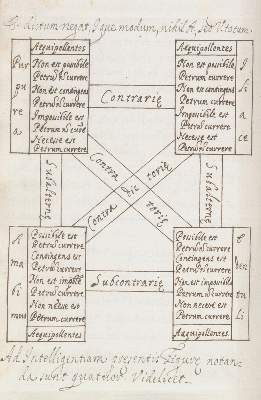 E. dictum negat, I que modum, nihil A, sed V totum.
Aequipollentes
Non est possibile
Petrū n̄ currere
Non est contingens
Petrū n̄ currere
Impossibile est
Petrum n̄ curre
Necesse est
Petrum currere
Pur
pu
re
a
Contrarię
Aequipollentes
Non est possibile
Petrum currere
Non est contingens
Petrum currere
Impossibile est
Petrum currere
Necesse est
Petrū n̄ currere
I
li
a
ce
Subalternę
Contra
dic
torię
Contra
torię
Subalternę
A
ma
bi
mus
Possibile est
Petrum currere
Contingens est
Petrū currere
Non impossibile est
Petrū currere
Non necesse est
Petrū n̄ currere
Aequipollentes
Subcontrarię
Possibile est
Petrū n̄ currere
Contingens est
Petrū n̄ currere
Non est impossibile
Petrū n̄ currere
Non necesse est
Petrum currere
Aequipollentes
E
den
tu
li
Ad Intelligentiam presentis figurę notan-
da sunt quatuor. Videlicet.